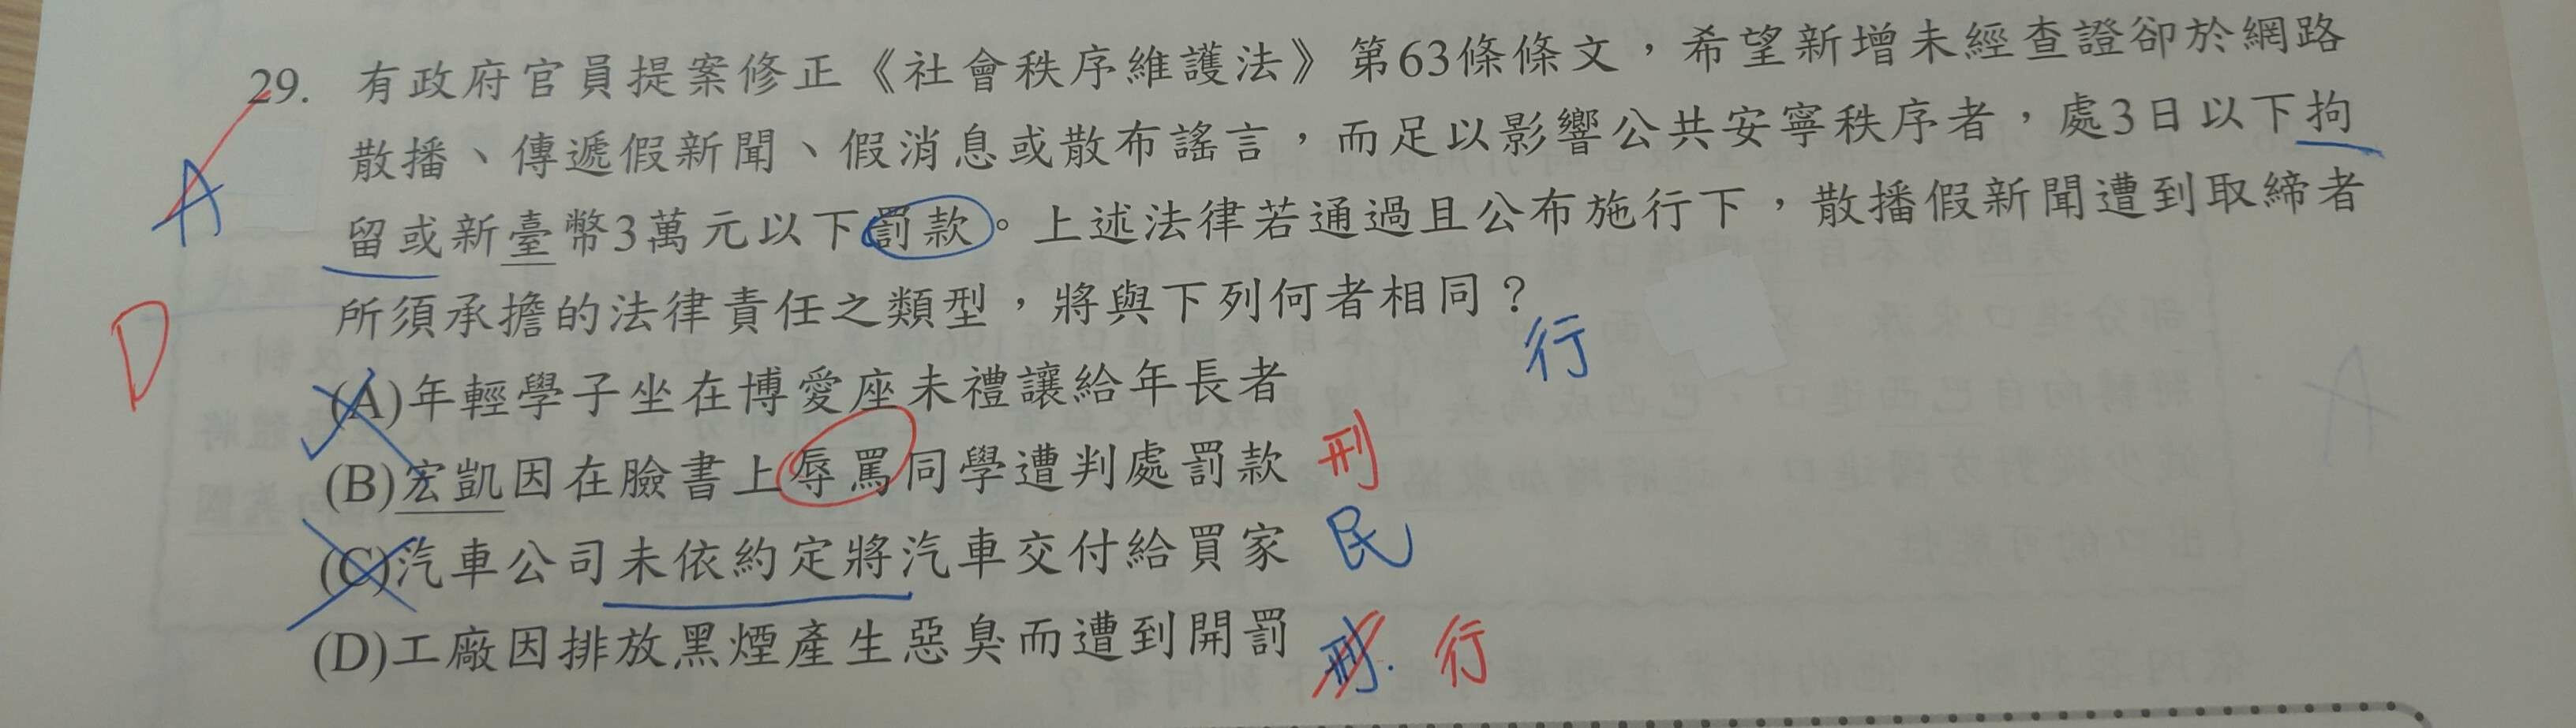 29. 有政府官員提案修正《社會秩序維護法》第63條條文，希望新增未經查證卻於網路
散播、傳遞假新聞、假消息或散布謠言，而足以影響公共安寧秩序者，處3日以下拘
A
留或新臺幣3萬元以下罰款。上述法律若通過且公布施行下，散播假新聞遭到取締者
所須承擔的法律責任之類型，將與下列何者相同？
行
D
(A)年輕學子坐在博愛座未禮讓給年長者
(B)宏凱因在臉書上辱罵同學遭判處罰款 刑
(C)汽車公司未依約定將汽車交付給買家 民
(D)工廠因排放黑煙產生惡臭而遭到開罰 刑. 行